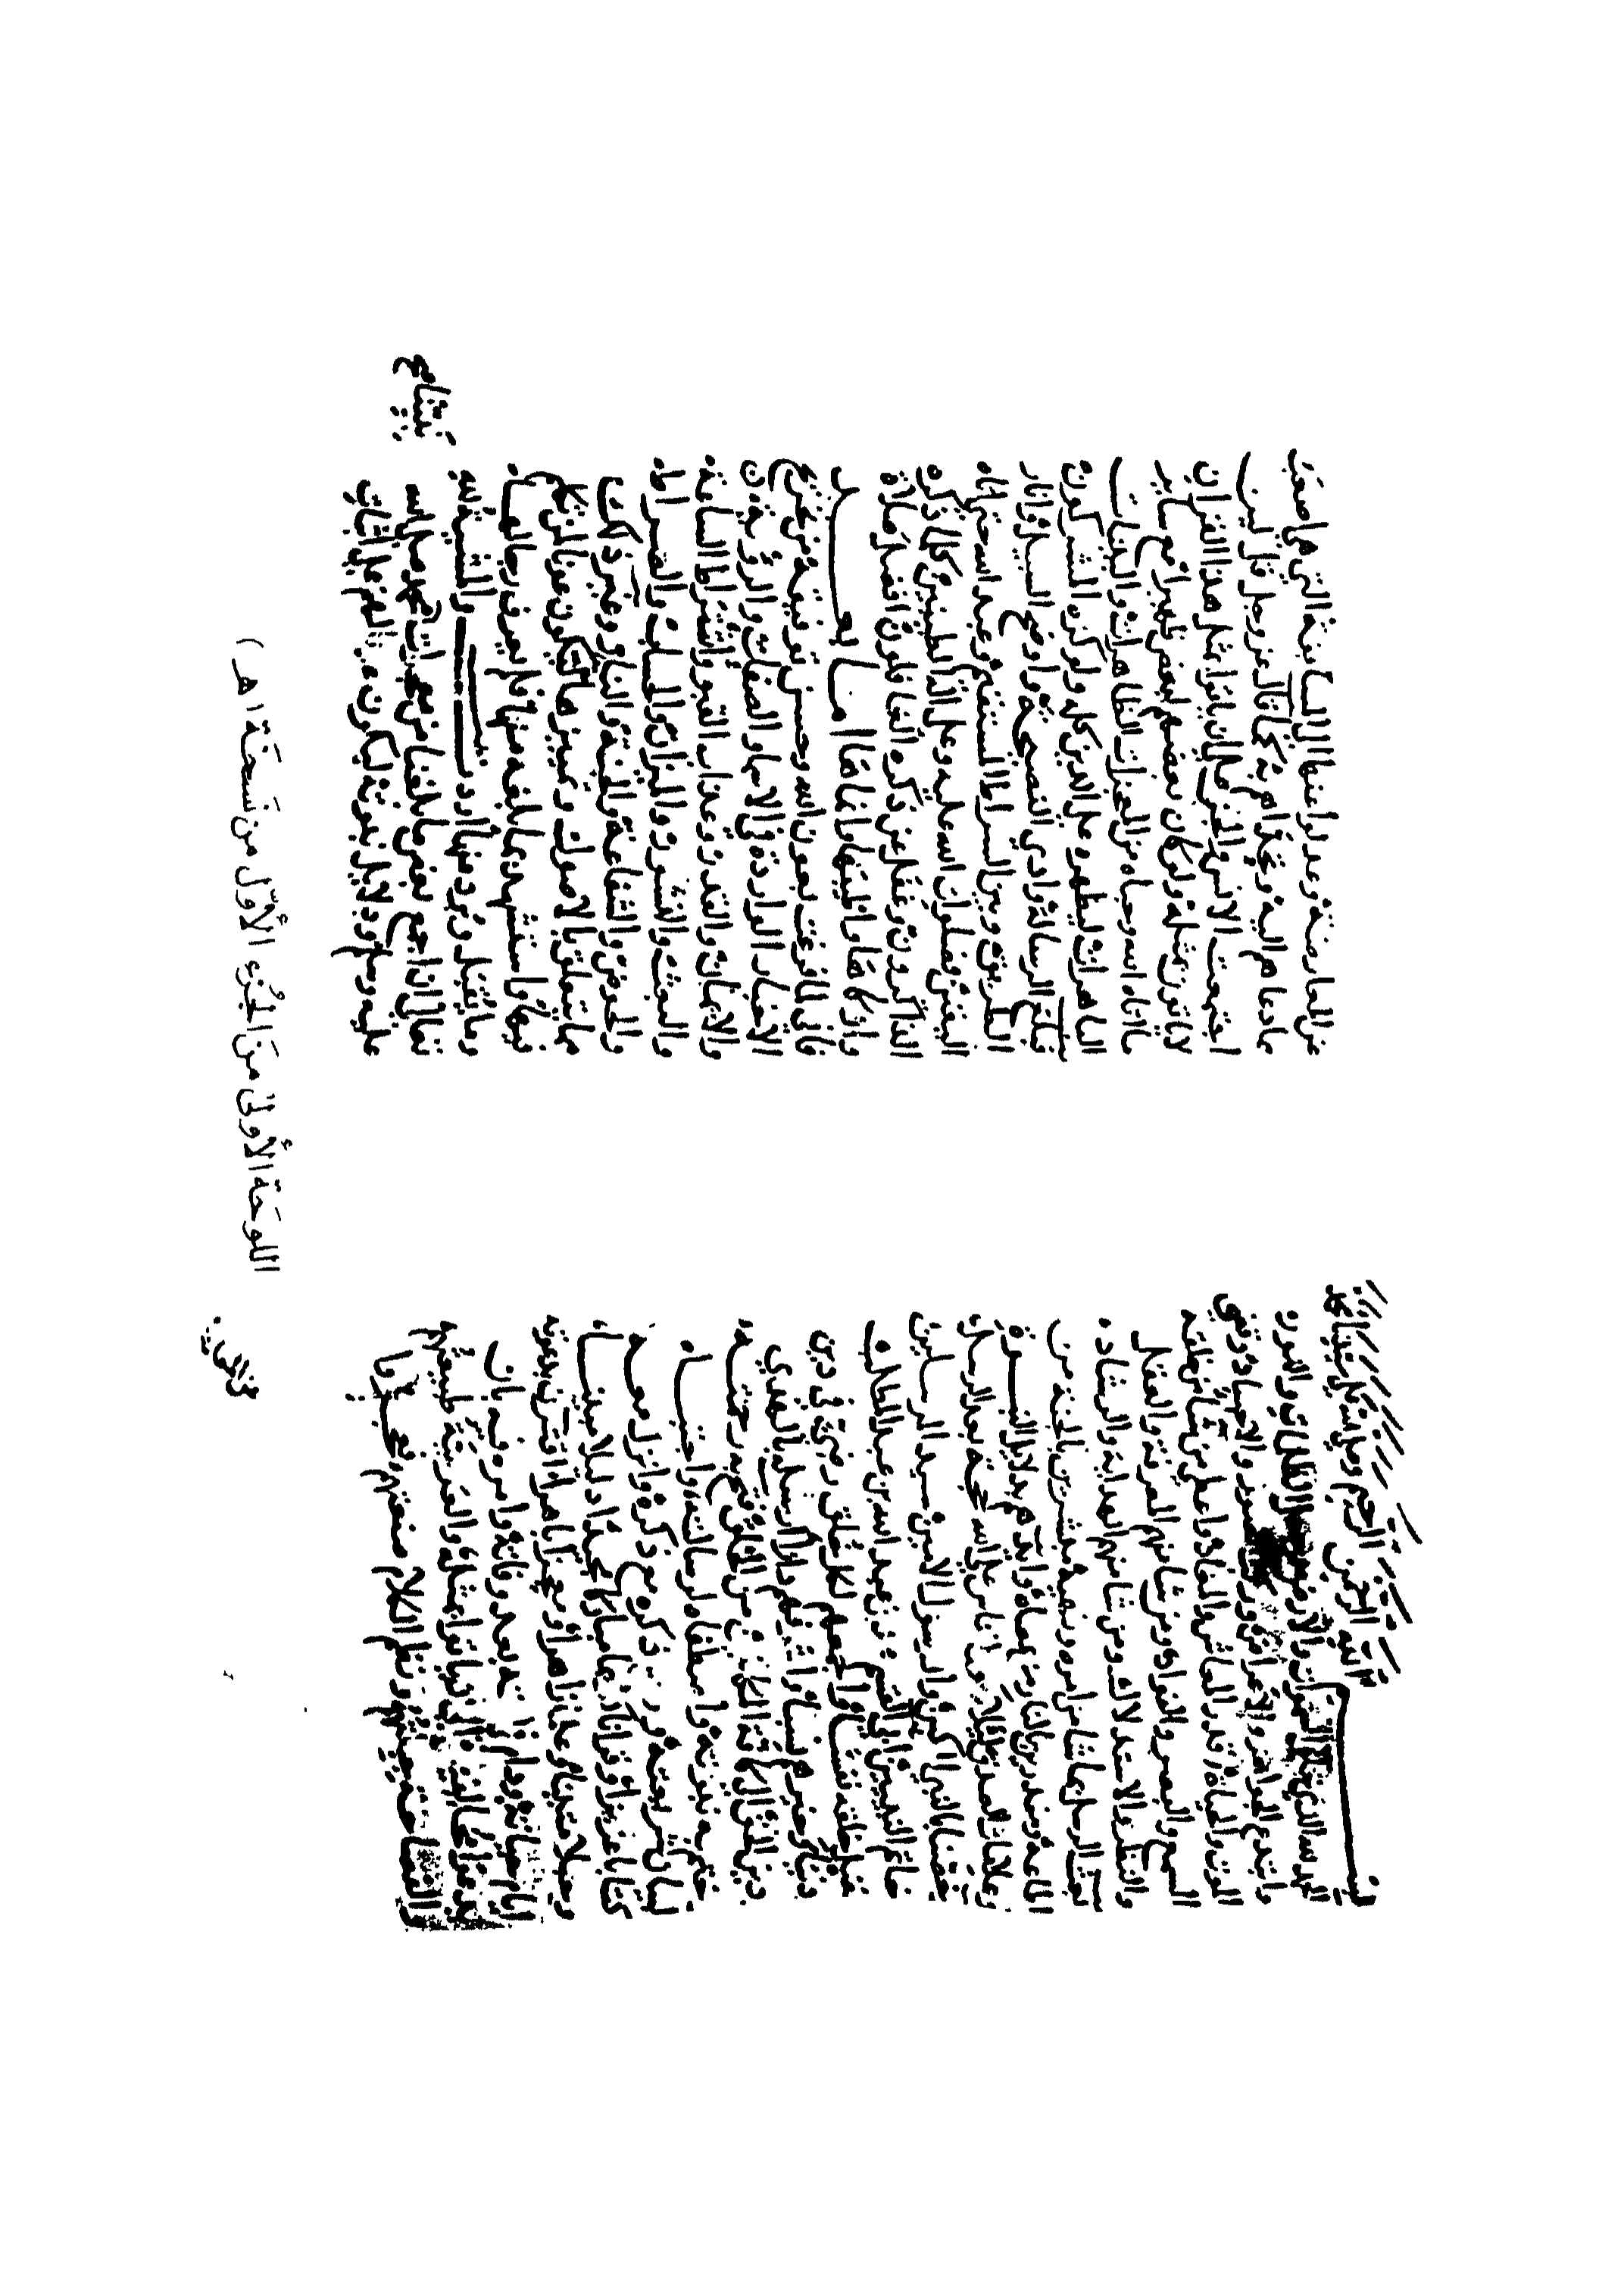 بسم الله الرحمن الرحيم وصلى الله على نبينا محمد
الحمد لله الذي خلق السموات والارض وجعل الظلمات والنور
وابتدع الجواهر والاعراض وركب الصور والاجساد وقضى
الموت والحياة وقدر المعاش والمعاد واعطى من شا من خلقه
السمع والبصر والفواد ومن شا منهم المعرفة والعقل
والنظر والاستدلال ومن شا منهم الهداية والرشاد
بعث الرسل بما شا من امره ونهيه مبشرين بالجنة من
اطاعه ومنذرين بالنار من عصاه وايدهم بدلايل النبوة
وعلامات الصدق ليلا يكون للناس على الله حجة بعد الرسل
خصنا بالنبي المكين والرسول الامين سيد المرسلين
خاتم النبيين ابي القسم محمد بن عبد الله بن عبد المطلب
خير خلقه نفسا واجمعهم لكل خلق رضي في دين
ودنيا وخيرهم نسبا ودارا ارسله بالهدى
ودين الحق الى كافة المكلفين من الخلق فتح به رحمته
وختم به نبوته واصطفاه لرسالته واجتباه
لبيان شريعته ورفع ذكره مع ذكره وانزل معه
كتابا عزيزا وقرانا كريما مباركا مجيدا دليلا مبينا
وحبلا متينا وعلما زاهرا ونورا باهرا اقترن بدعوته
ايام حياته ودام في امته بعد وفاته وامر فيه بان
يدعوا مخالفيه الى ان ياتوا بمثله والعربية طبيعتهم
والفصاحة جبلتهم ونظم الكلام صنعتهم فعجزوا
عن المعارضة وعدلوا عنها الى المسايفة التي هي اصعب
مما دعاهم اليه وتحداهم به كما قال عز وجل قل لين
اجتمعت الانس والجن على ان ياتوا بمثل هذا القران
لا ياتون بمثله ولو كان بعضهم لبعض ظهيرا مع ساير
ما اتاه الله وحباه من المعجزات الظاهرات والبينات
الباهرات ليظهره على الدين كله ولو كره المشركون
فبلغ الرسالة وادى النصيحة واوضح السبيل وانار
الطريق وبين الصراط المستقيم وعبد الله حتى اتاه
اليقين فصلوات الله عليه وعلى اله الطيبين كلما ذكره
الذاكرون وغفل عن ذكره الغافلون افضل صلاة
وازكاها واطيبها وانماها اما بعد
فاني لما فرغت بعون الله وحسن توفيقه من تخريج
الاخبار الواردة في الاسماء والصفات والروية
والايمان والقدر وعذاب القبر واشراط الساعة
والبعث والنشور والميزان والحساب والصراط
والحوض والشفاعة والجنة والنار وغير ذلك
مما يتعلق بالاصول وتمييزها ليكون عونا لمن تكلم
فيها واستشهد بما بلغه منها فلم يعرف حالها
وما يقبل وما يرد منها اردت والمشية لله
تعالى ان اجمع بعض ما بلغنا من معجزات نبينا محمد صلى الله
عليه وسلم ودلايل نبوته ليكون عونا لهم على اثبات
اللوحة الأولى من الجزء الأول من نسخة (هـ)